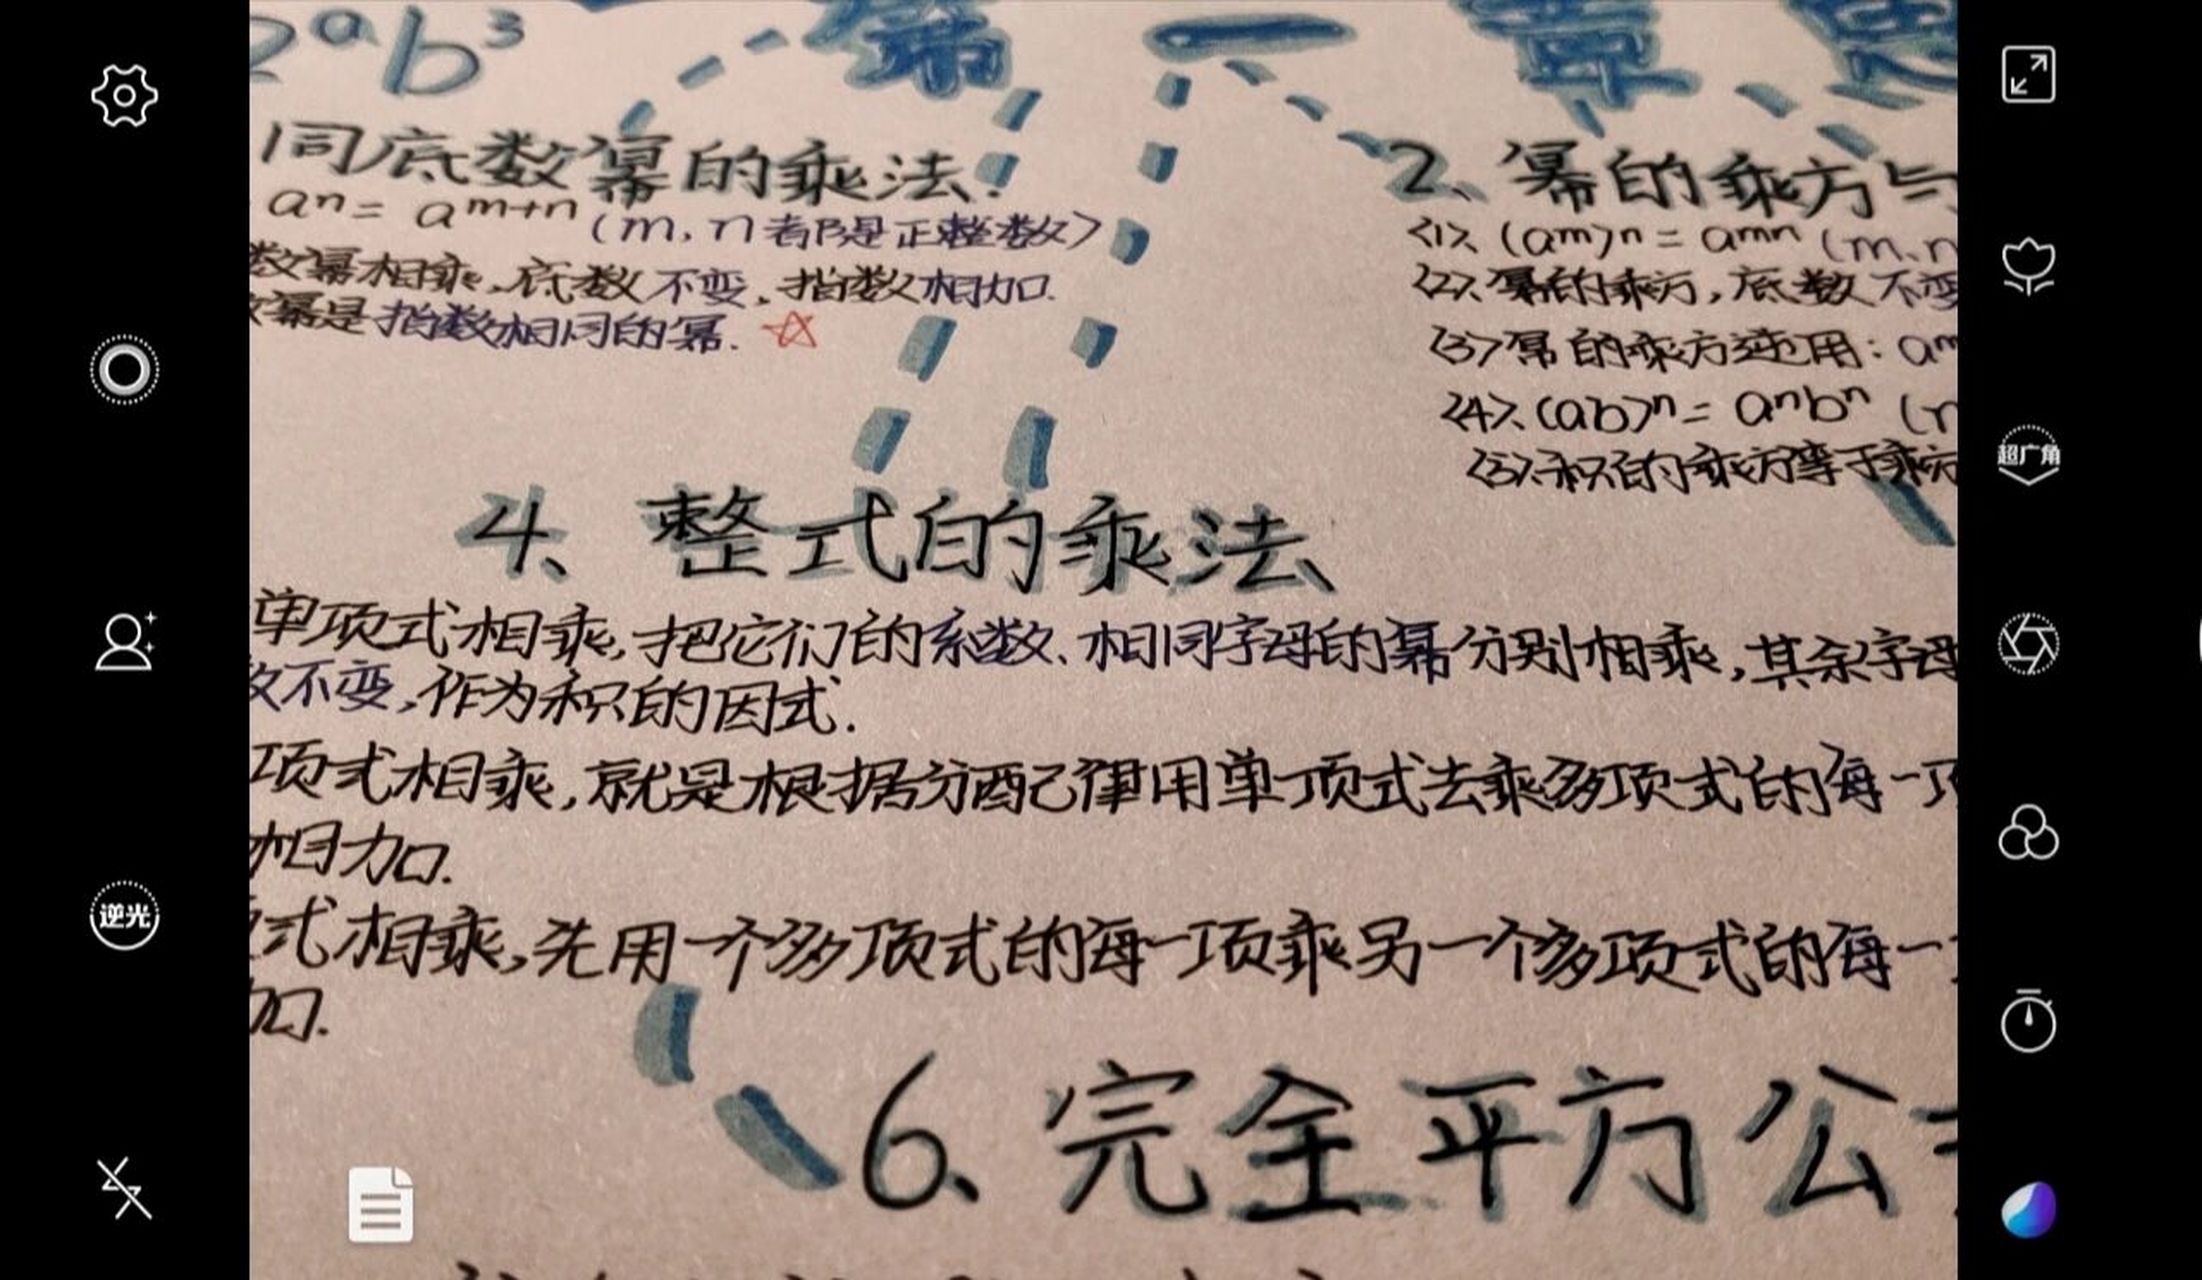 2ᵃb³
第一章
同底数幂的乘法.
aⁿ = aᵐ⁺ⁿ (m, n都是正整数)
数幂相乘,底数不变,指数相加.
幂是指数相同的幂. ☆
2、幂的乘方与
<1>、(aᵐ)ⁿ = aᵐⁿ (m、n
<2>、幂的乘方,底数不变
<3>幂的乘方逆用: aᵐ
<4>、(ab)ⁿ = aⁿbⁿ (n
<5>、积的乘方等于乘方
4、整式的乘法
单项式相乘,把它们的系数、相同字母的幂分别相乘,其余字母
数不变,作为积的因式.
项式相乘,就是根据分配律用单项式去乘多项式的每一项
相加.
式相乘,先用一个多项式的每一项乘另一个多项式的每一
加.
6、完全平方公
超广角
逆光